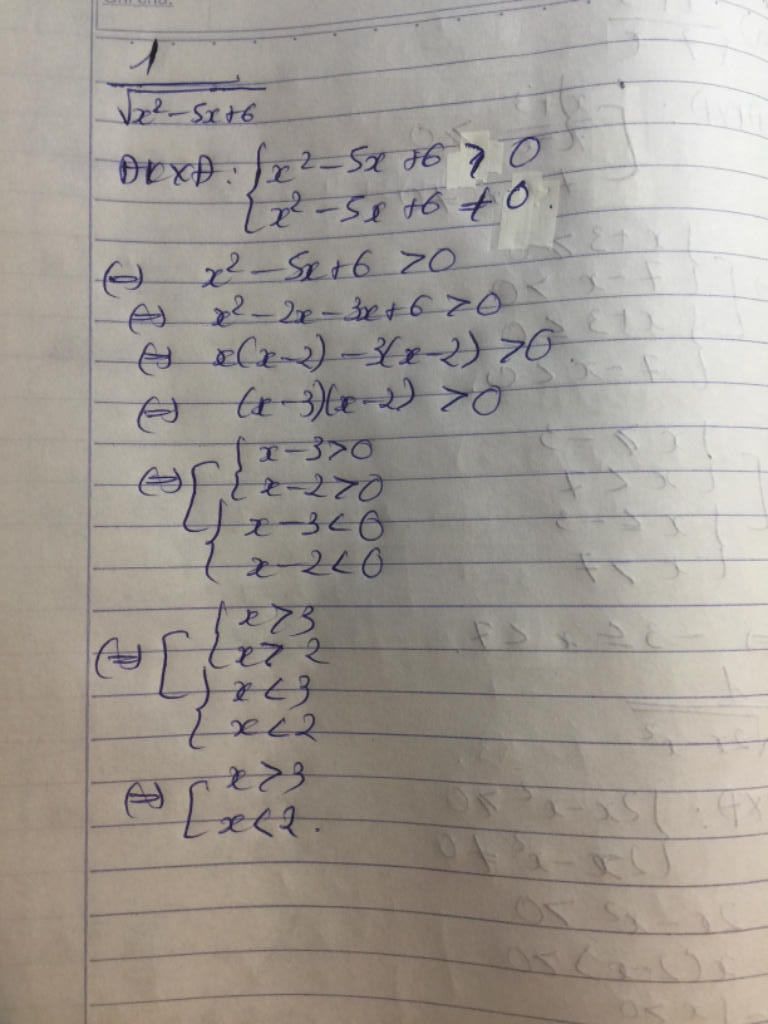 1
√x² - 5x + 6
ĐKXĐ: { x² - 5x + 6 ≥ 0
x² - 5x + 6 ≠ 0.
(=) x² - 5x + 6 > 0
(=) x² - 2x - 3x + 6 > 0
(=) x(x - 2) - 3(x - 2) > 0
(=) (x - 3)(x - 2) > 0
(=) [ { x - 3 > 0
x - 2 > 0
{ x - 3 < 0
x - 2 < 0
(=) [ { x > 3
x > 2
{ x < 3
x < 2
(=) [ x > 3
x < 2.